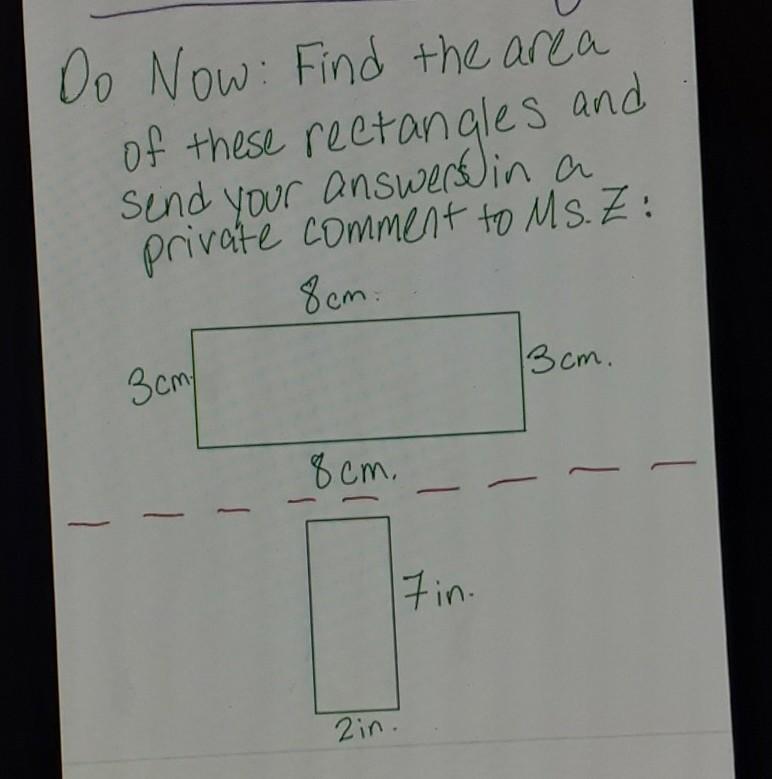 Do Now: Find the area
of these rectangles and
send your answer(s) in a
private comment to Ms. Z:
8cm.
3cm
3cm.
8cm.
7in.
2in.